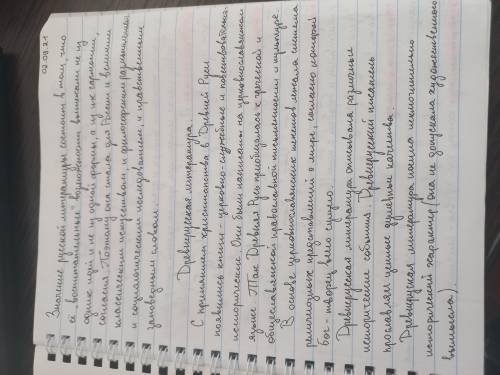 02.09.21
Значение русской литературы состоит в том, что
её "воспитательные" возможности вытекают не из
одних идей и не из одной формы, а из их гармонии,
согласия. Поэтому она стала для России и великим
классическим искусством, и философским размышлением,
и социологическим исследованием, и нравственным
заповедным словом.
Древнерусская литература.
С принятием христианства в Древней Руси
появились книги - церковно-служебные и повествовательно-
исторические. Они были написаны на церковнославянском
языке. Так Древняя Русь приобщилась к греческой и
общеславянской православной письменности и культуре.
В основе церковнославянских текстов лежала система
религиозных представлений о мире, согласно которой
бог - творец всего сущего.
Древнерусская литература описывала различные
исторические события. Древнерусский писатель
прославлял ценные душевные качества.
Древнерусская литература носила исключительно
исторический характер (она не допускала художественного
вымысла).